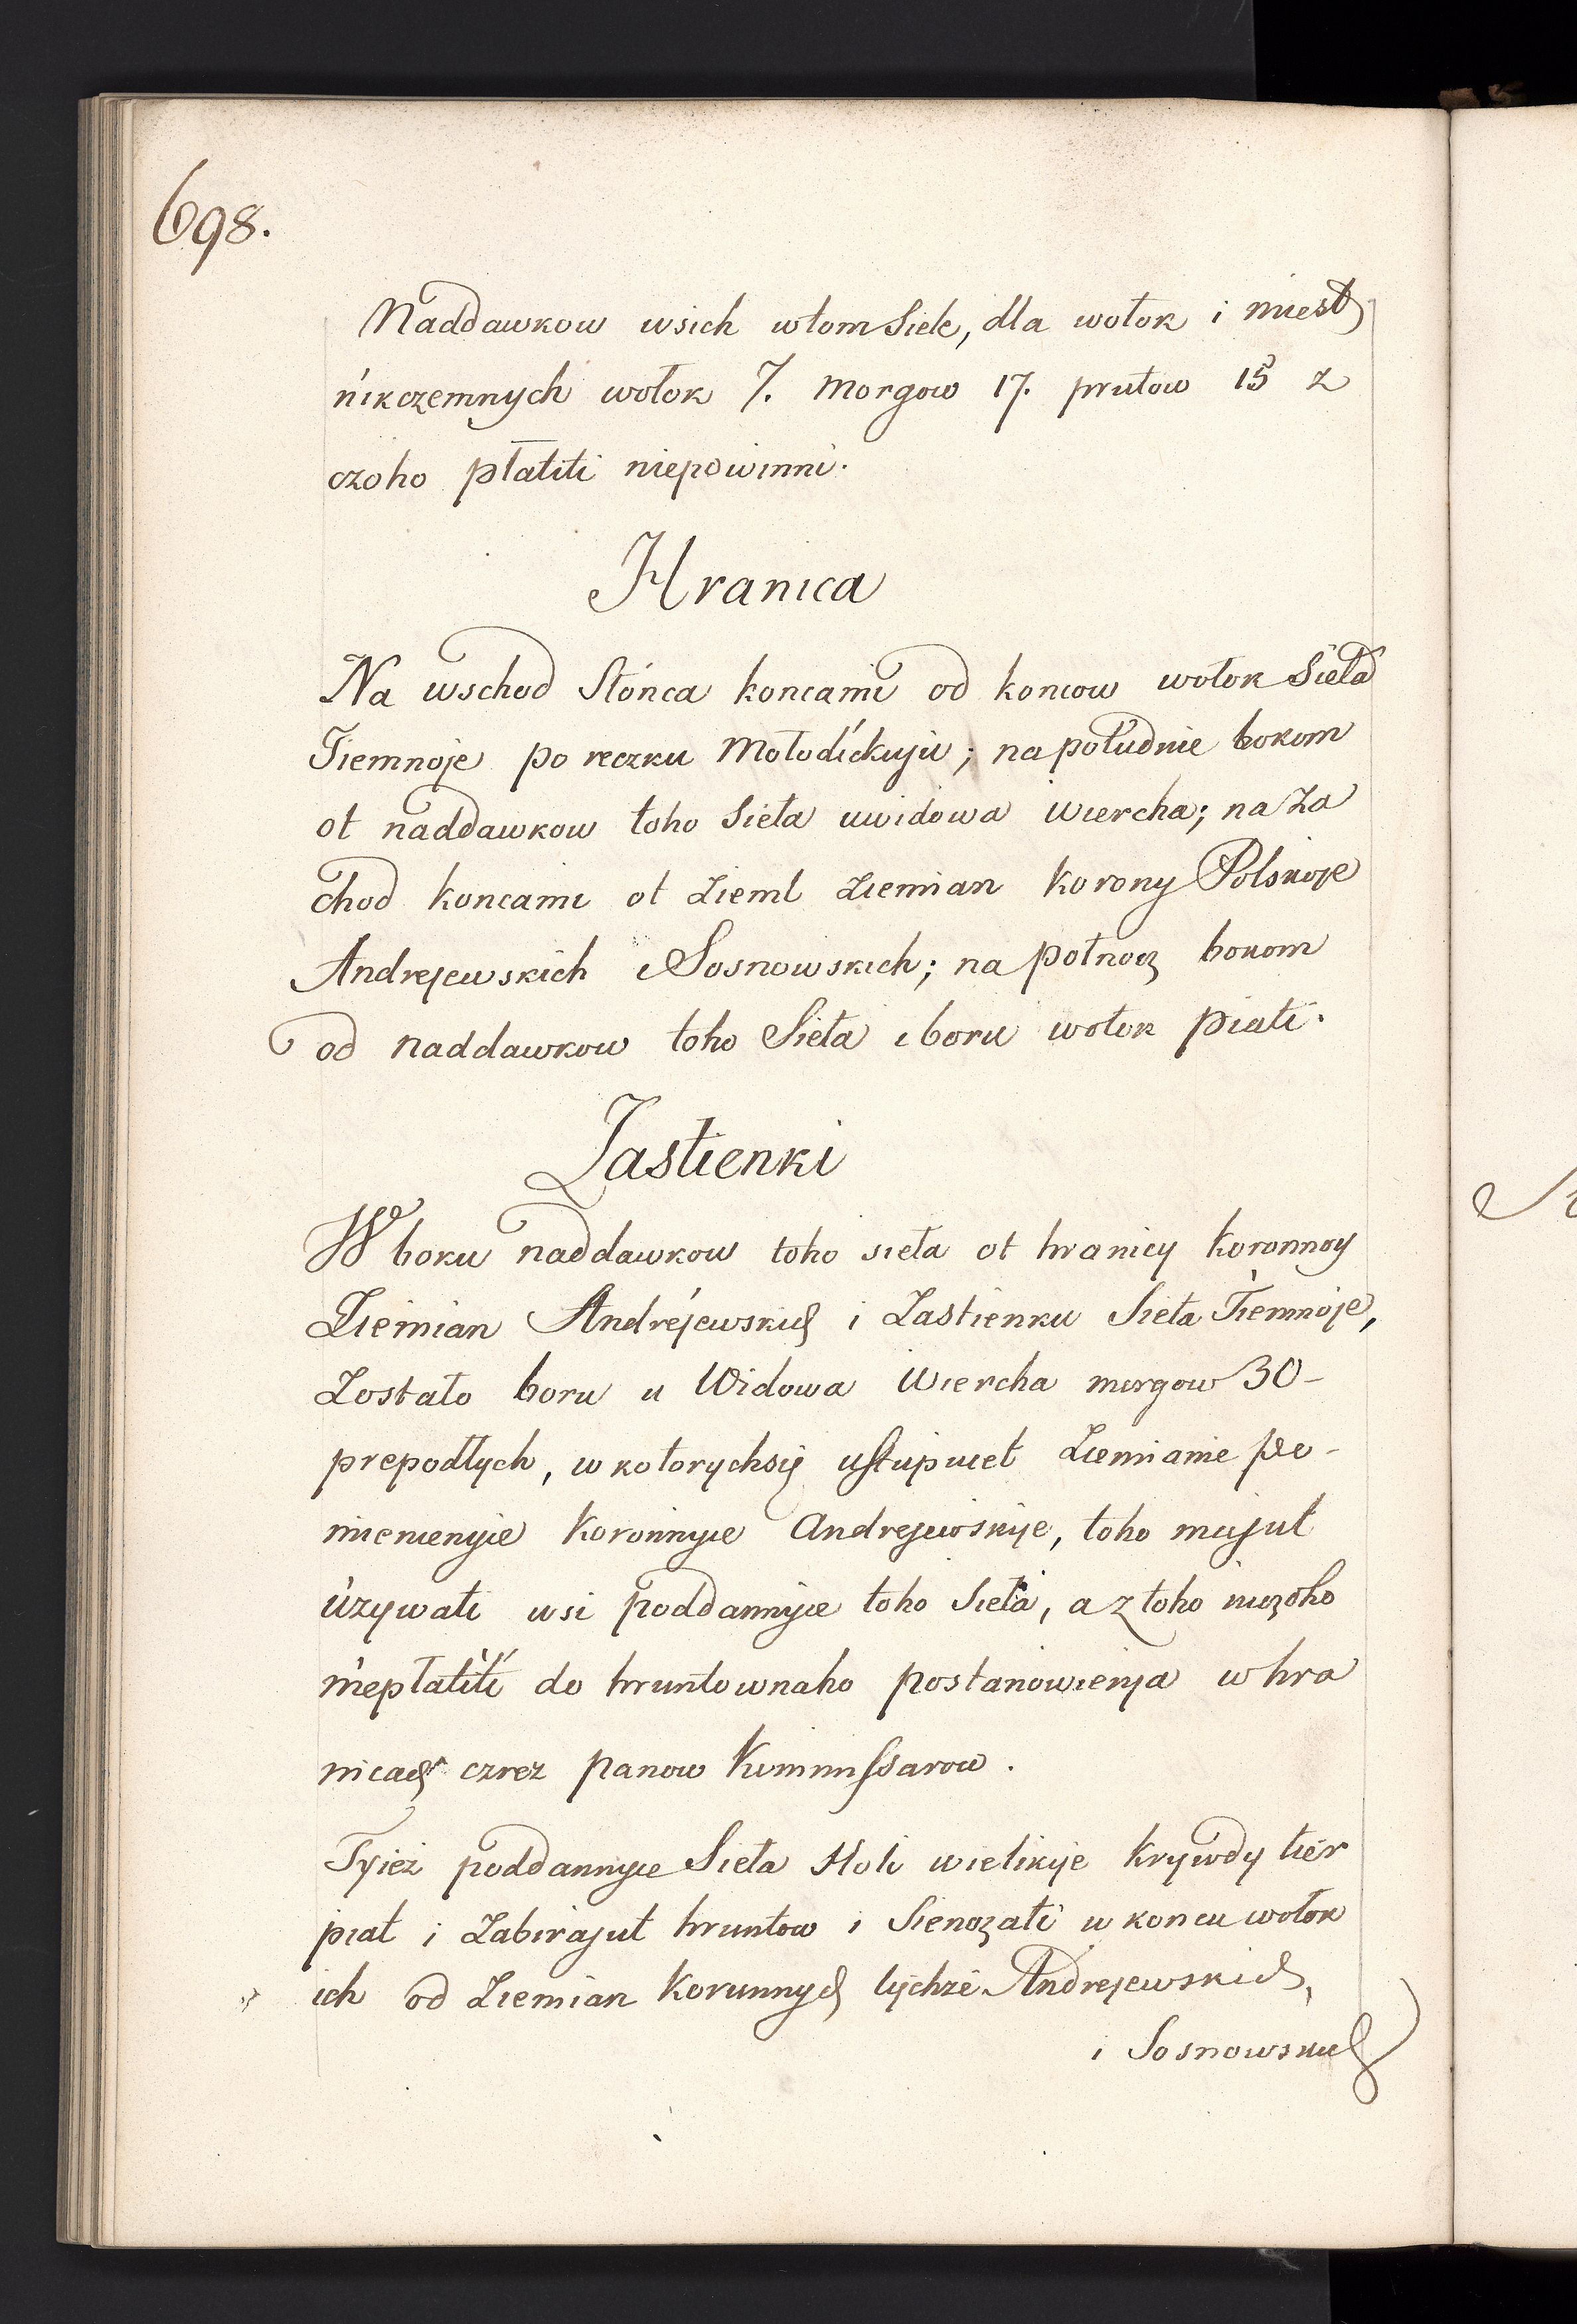 698.
Naddawkow wsich wtom Siele, dla wołok i miest
nikczemnych wołok 7. morgow 17. prutow 15 z
czoho płatiti niepowinni.
Hranica
Na wschod Słonca koncami od koncow wołok Sieła
Tiemnoje po reczku Mołodickuju; na południe bokom
ot naddawkow toho Sieła uwidowa wiercha; na Za
chod koncami ot Zieml Ziemian Korony Polskoje
Andrejewskich i Sosnowskich; na połnocz bokom
od naddawkow toho Sieła i boru wołok piati.
Zastienki
W boku naddawkow toho sieła ot hranicy Koronnoy
Ziemian Andrejewskich i Zastienku Sieła Tiemnoje,
Zostało boru u Widowa Wiercha morgow 30-
prepodłych, w kotorychsię ustupuiet Ziemianie po-
mienienyie Koronnyie Andrejewskije, toho majut
używati wsi poddannyie toho Sieła, a z toho niczoho
niepłatiti do hruntownaho postanowienja w hra
nicach czrez panow Kommissarow.
Tyież poddannyie Sieła Holi wielikije Krywdy tier
piat i Zabirajut hruntow i Sienozati w koncu wołok
ich od Ziemian Koronnych tychże Andrejewskich,
i Sosnowskich